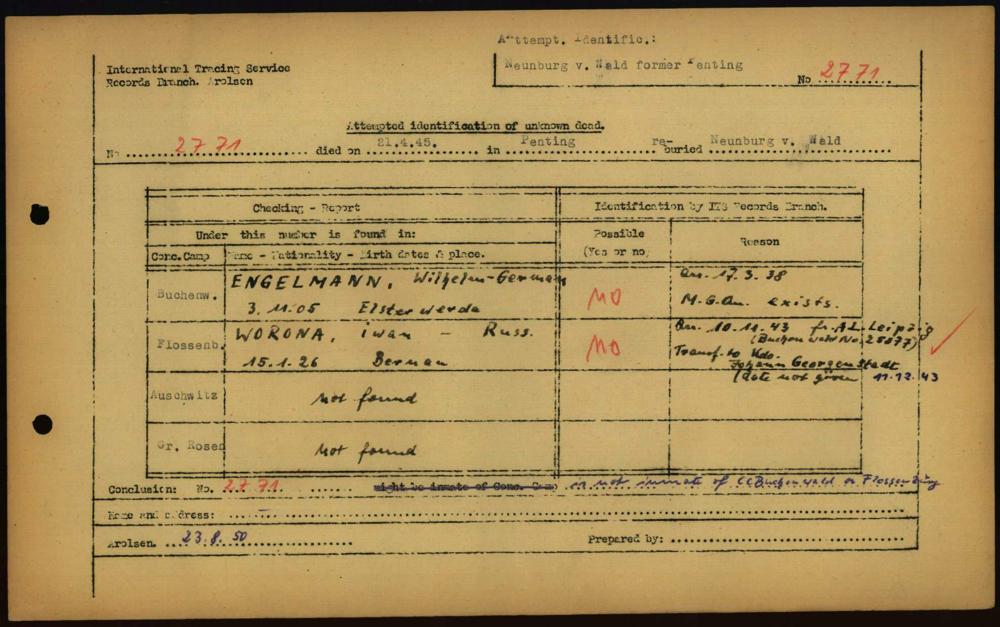 Atttempt. Identific.:
Neunburg v. Wald former Penting
No 2771
International Tracing Service
Records Branch. Arolsen
Attempted identification of unknown dead.
No 2771 died on 21.4.45. in Penting re-buried Neunburg v. Wald
Checking - Report
Identification by ITS Records Branch.
Under this number is found in:
Possible (Yes or no)
Reason
Conc.Camp
Name - Nationality - Birth dates & place.
Buchenw.
ENGELMANN, Wilhelm - German
3.11.05 Elsterwerda
NO
Arr. 17.3.38
M.G.Au. exists.
Flossenb.
WORONA, iwan - Russ.
15.1.26 Berman
NO
Arr. 10.11.43 fr. A.L. Leipzig
(Buchenwald No. 25077)
Transf. to Kdo.
Johann Georgenstadt
(date not given 11.12.43
Auschwitz
not found
Gr. Rosen
not found
Conclusion: No. 2771 might be inmate of Conc. Camp is not inmate of CC Buchenwald or Flossenbürg
Name and address: -
Arolsen. 23.8.50
Prepared by: